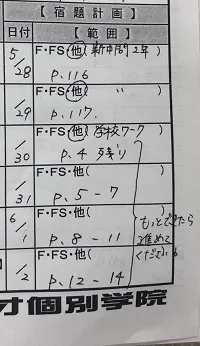 【宿題計画】
日付 【範囲】
5/28 F・FS・他( 新中問2年 )
p.116
/29 F・FS・他( 〃 )
p.117.
/30 F・FS・他( 学校ワーク )
p.4 残り
/31 F・FS・他(
p.5-7
6/1 F・FS・他(
p.8-11
/2 F・FS・他(
p.12-14
もっとできたら
進めて
ください。
オ個別学院